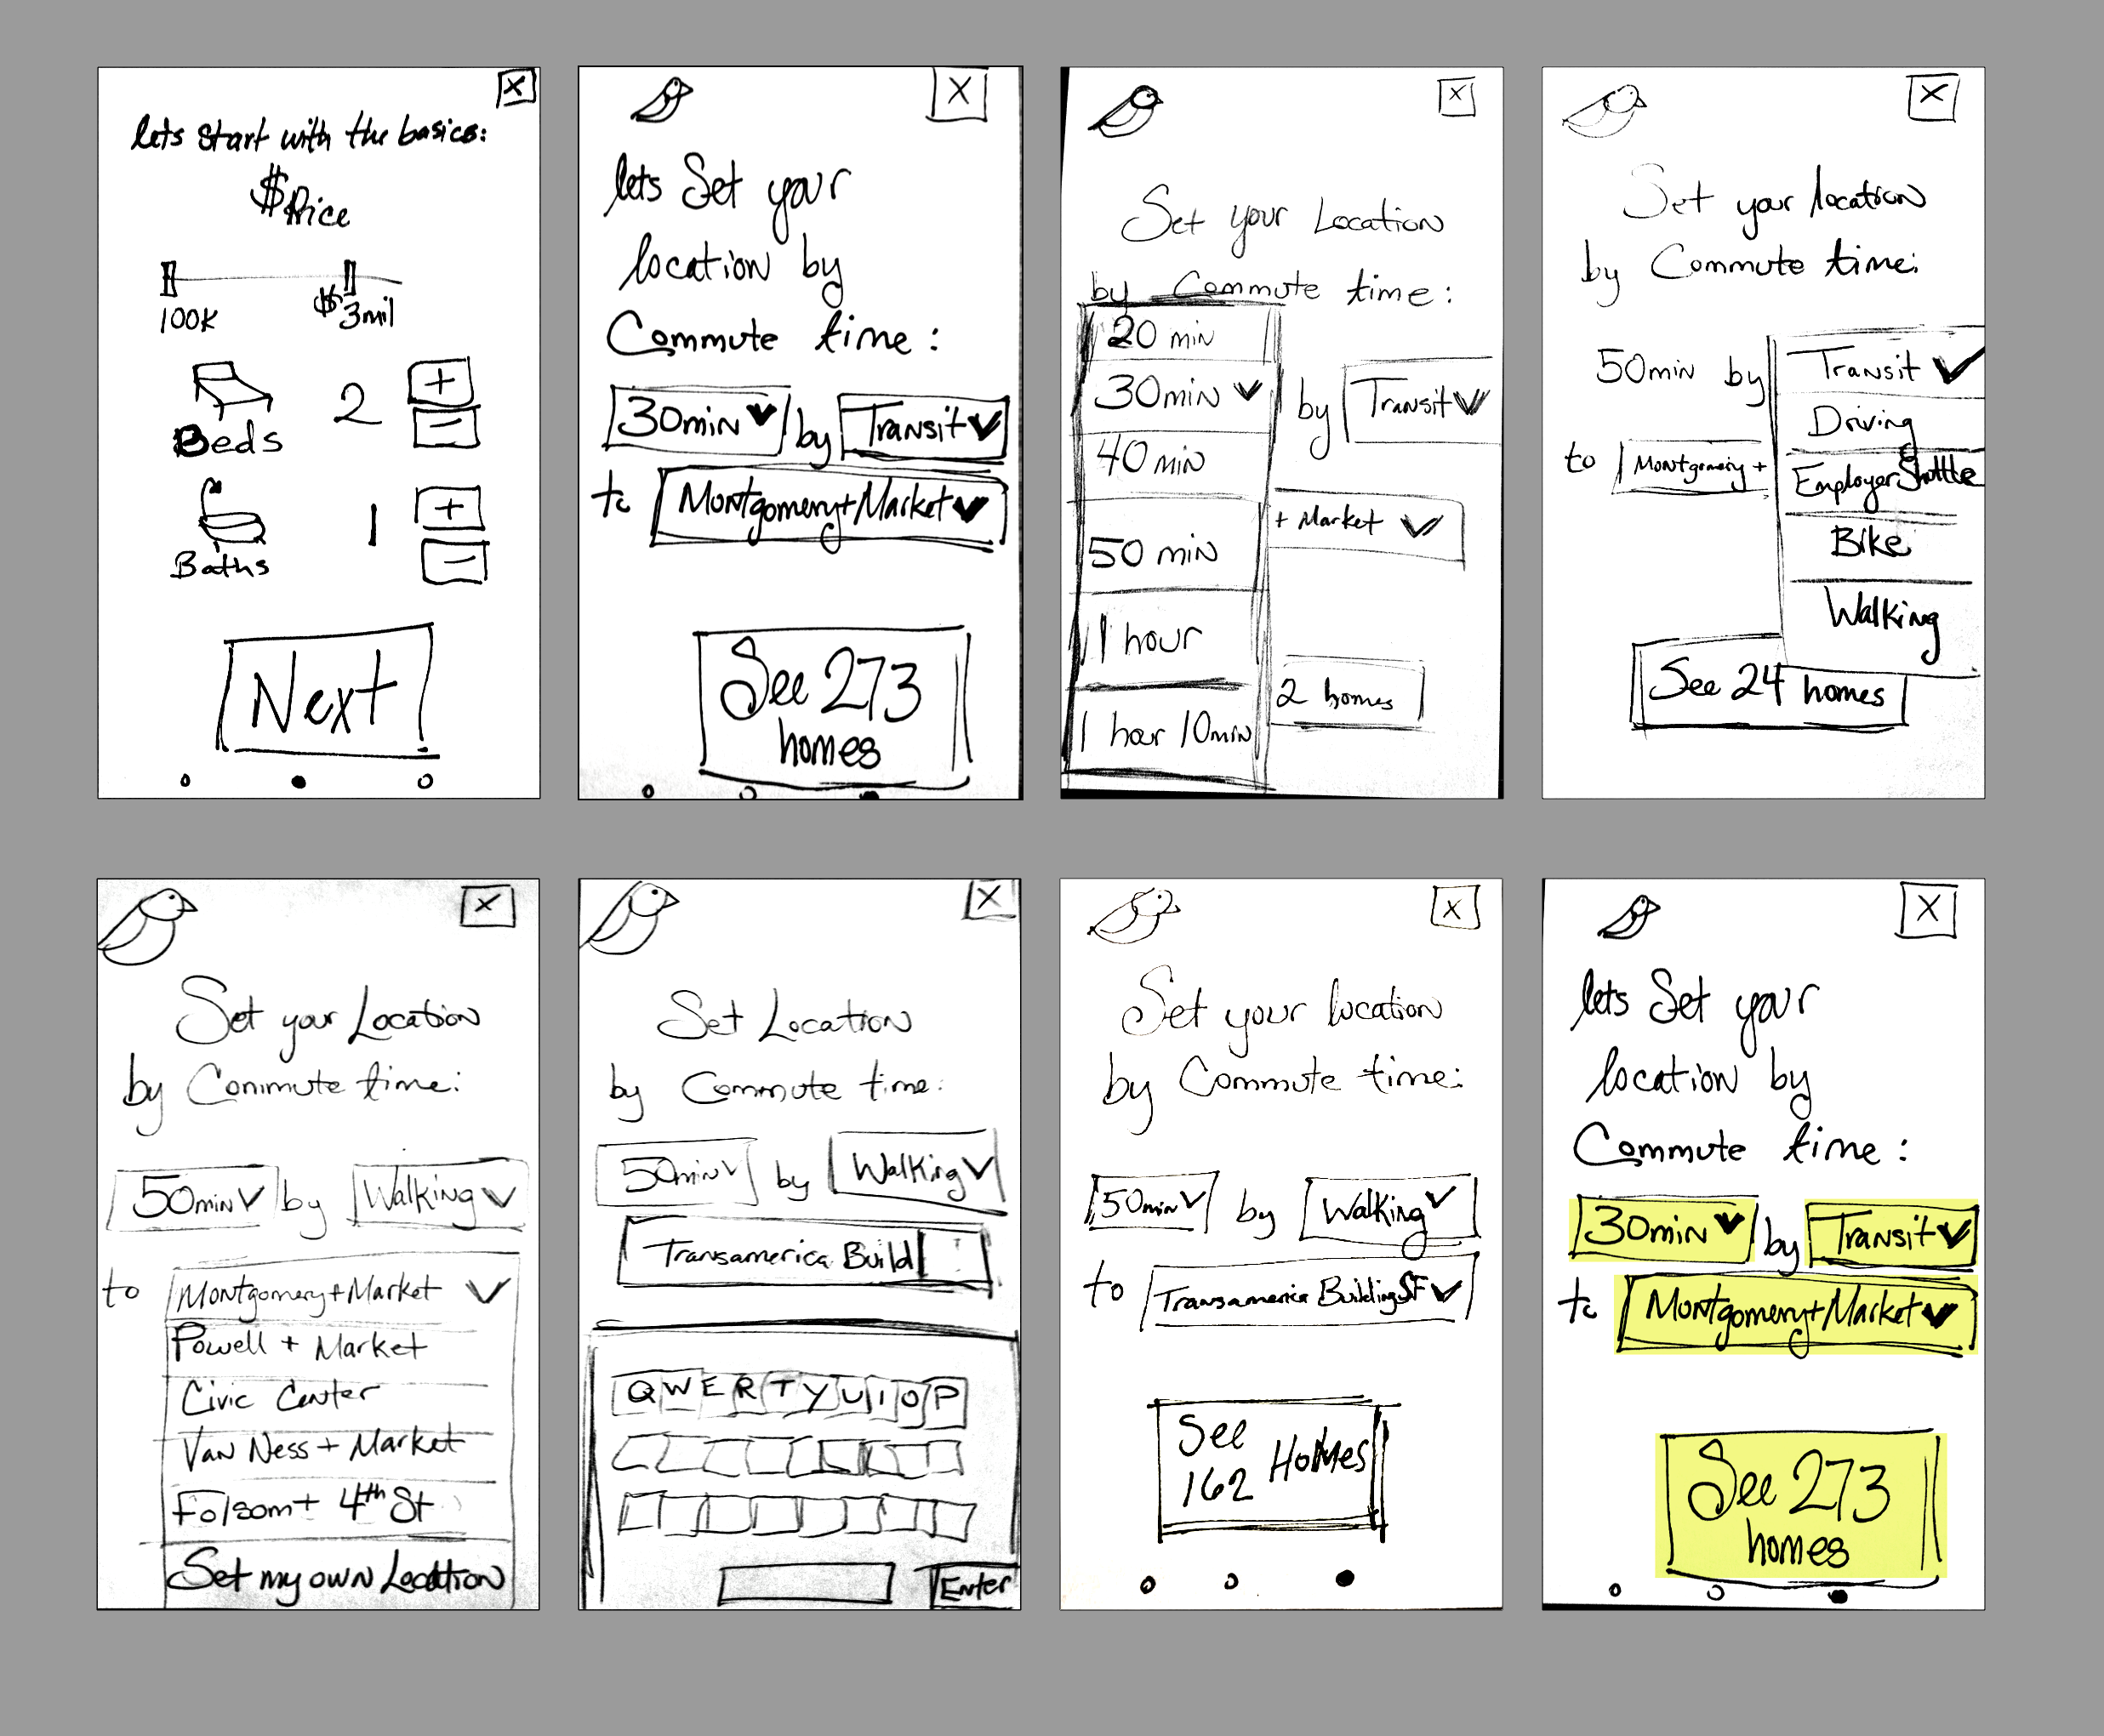 X
lets start with the basics:
$Price
100K $3mil
Beds 2 + -
Baths 1 + -
Next
X
lets Set your
location by
Commute time:
30min by Transit
to Montgomery+Market
See 273
homes
X
Set your Location
by Commute time:
20 min
30min by Transit
40 min
+ Market
50 min
1 hour
2 homes
1 hour 10min
X
Set your location
by Commute time:
50min by Transit
Driving
to Montgomery +
Employer Shuttle
Bike
Walking
See 24 homes
X
Set your Location
by Commute time:
50min by Walking
to Montgomery+Market
Powell + Market
Civic Center
Van Ness + Market
Folsom+ 4th St
Set my own Location
X
Set Location
by Commute time:
50min by Walking
Transamerica Build
Q W E R T Y U I O P
Enter
X
Set your location
by Commute time:
50min by Walking
to Transamerica Building SF
See
162 Homes
X
lets Set your
location by
Commute time:
30min by Transit
to Montgomery+Market
See 273
homes